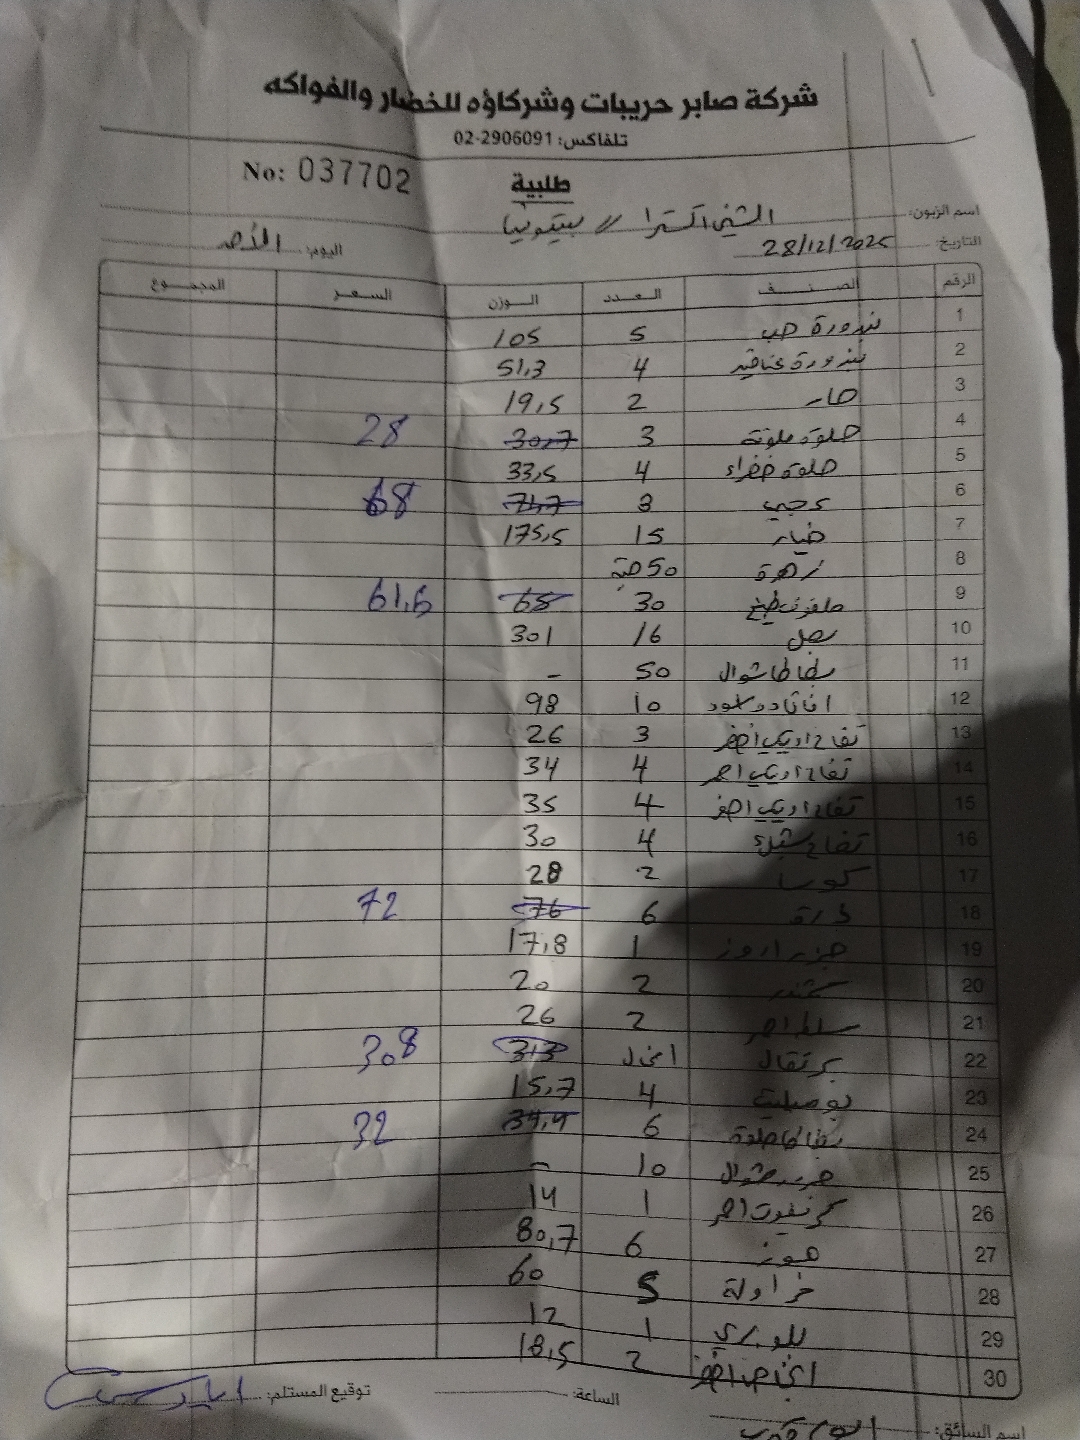 شركة صابر حريبات وشركاؤه للخضار والفواكه
تلفاكس: 02-2906091
No: 037702
طلبية
اسم الزبون: الشني اكسترا // بيتونيا
التاريخ: 28/12/2025 اليوم: الأحد
الرقم الصنف العدد الوزن السعر المجموع
1 بندورة حب 5 105
2 بندورة عناقيد 4 51,3
3 حار 2 19,5
4 حلوة ملونة 3 30,7 28
5 حلوة خضراء 4 33,5
6 عجمي 3 71,7 68
7 خيار 15 175,5
8 زهرة 50 حبة
9 ملفوف طبخ 30 65 61,6
10 بصل 16 301
11 بطاطا شوال 50 -
12 10 98
13 تفاح اخضر 3 26
14 تفاح احمر 4 34
15 تفاح اصفر 4 35
16 تفاح 4 30
17 كوسا 2 28
18 ذرة 6 76 72
19 جزر اروز 1 17,8
20 شمندر 2 20
21 احمر 2 26
22 برتقال 313 308
23 بوملي 4 15,7
24 بطاطا حلوة 6 34,4 32
25 جزر شوال 10 -
26 احمر 1 14
27 موز 6 80,7
28 فراولة 5 60
29 1 12
30 اجاص اخضر 2 18,5
الساعة: توقيع المستلم:
اسم السائق: